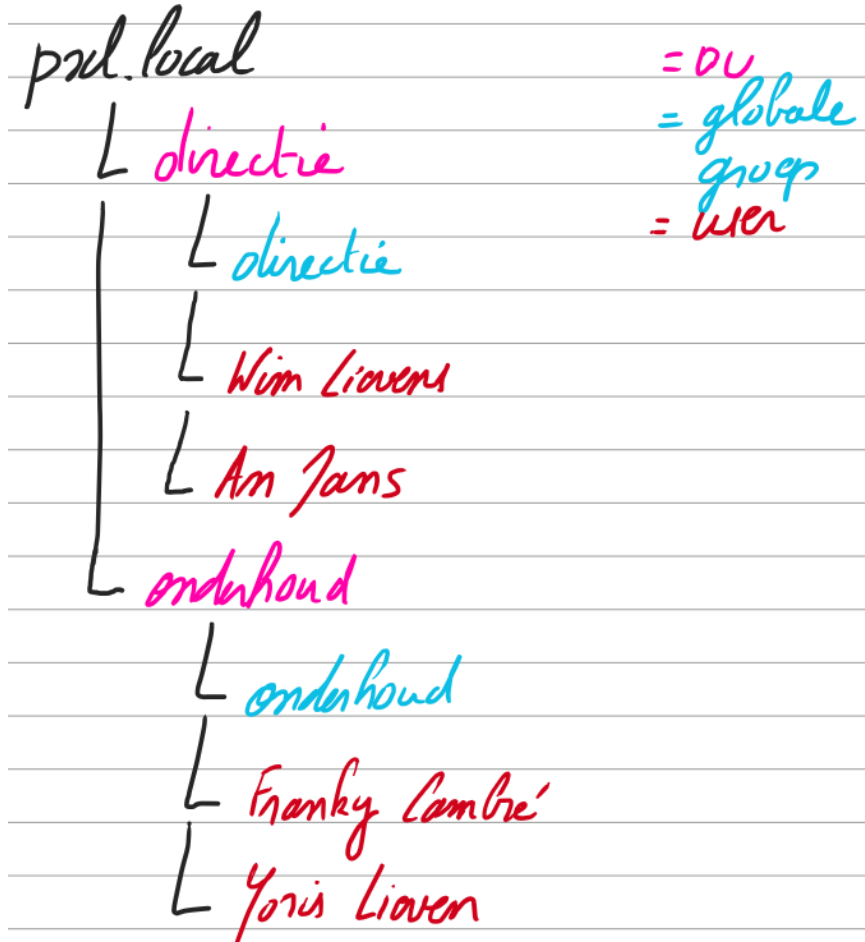 pxl.local
= OU
= globale
groep
= user
directie
directie
Wim Lievens
An Jans
onderhoud
onderhoud
Franky Cambré
Yoris Lieven